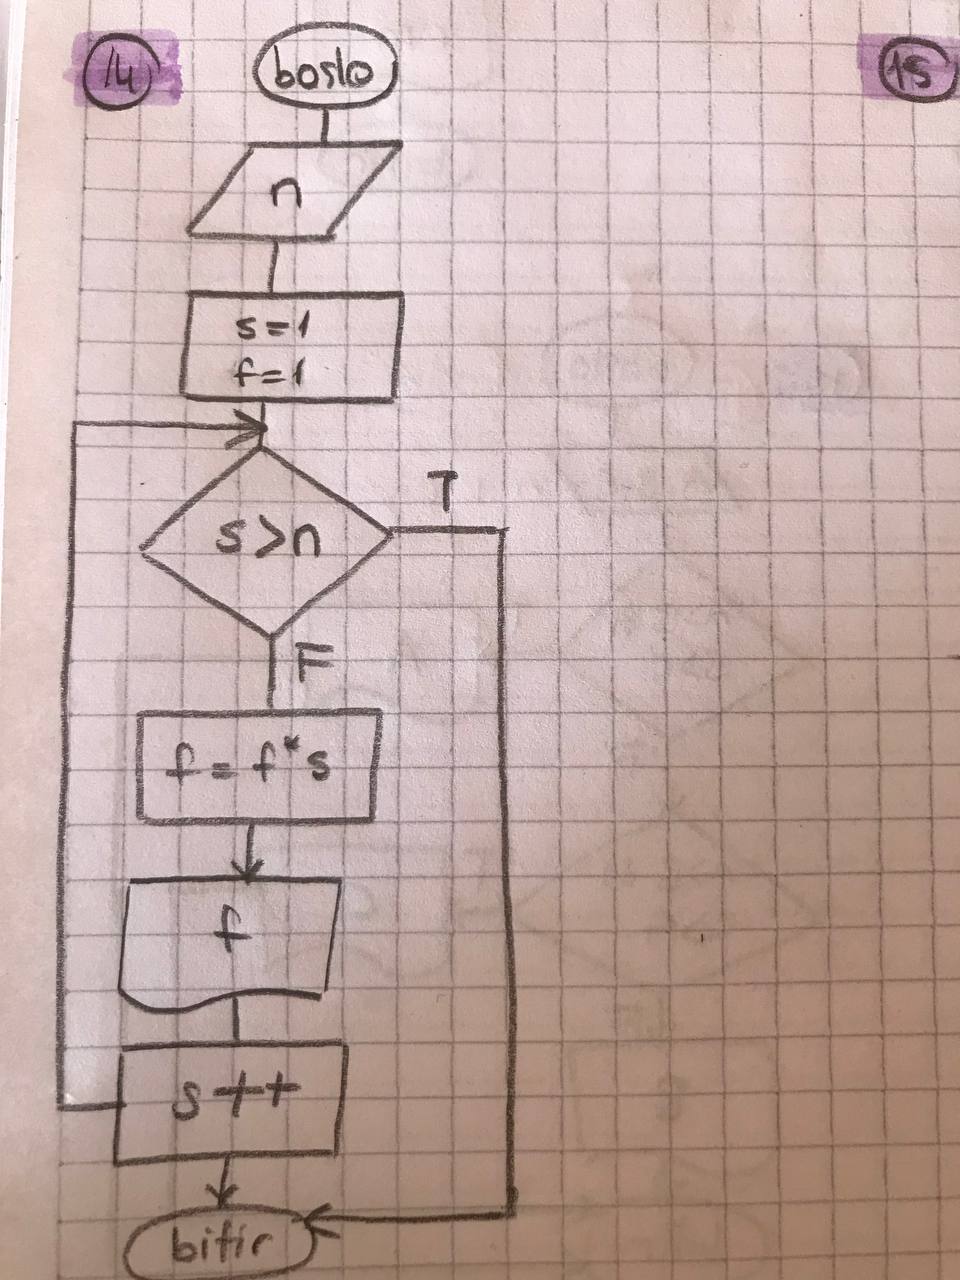 14
başla
15
n
s=1
f=1
s>n
T
F
f=f*s
f
s++
bitir